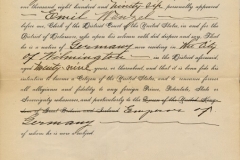 one thousand eight hundred and Ninety Six personally appeared
Emil Wenzel
Clerk of the District Court of the United States, in and for the
District of Delaware, who upon his solemn oath did depose and say, That
he is a native of Germany now residing in the City
of Wilmington in the District aforesaid
aged Twenty nine years or thereabout, and that it is bona fide his
intention to become a Citizen of the United States, and to renounce forever
all allegiance and fidelity to any foreign Prince, Potentate, State or
Sovereignty whatever, and particularly to the
Emperor of
Germany
of whom he is now Subject